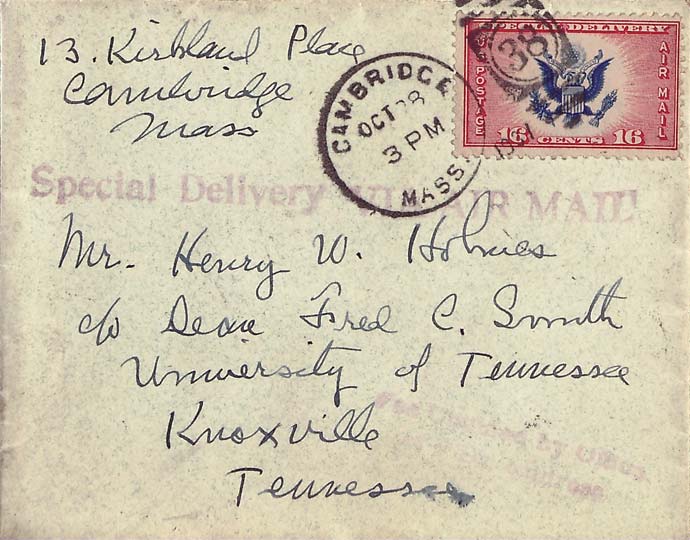 13. Kirkland Place
Cambridge
Mass
CAMBRIDGE
OCT 28
3 PM
MASS.
38
SPECIAL DELIVERY
U.S. POSTAGE
AIR MAIL
16 CENTS 16
Special Delivery VIA AIR MAIL
Mr. Henry W. Holmes
c/o Dean Fred C. Smith
University of Tennessee
Knoxville
Tennessee
by